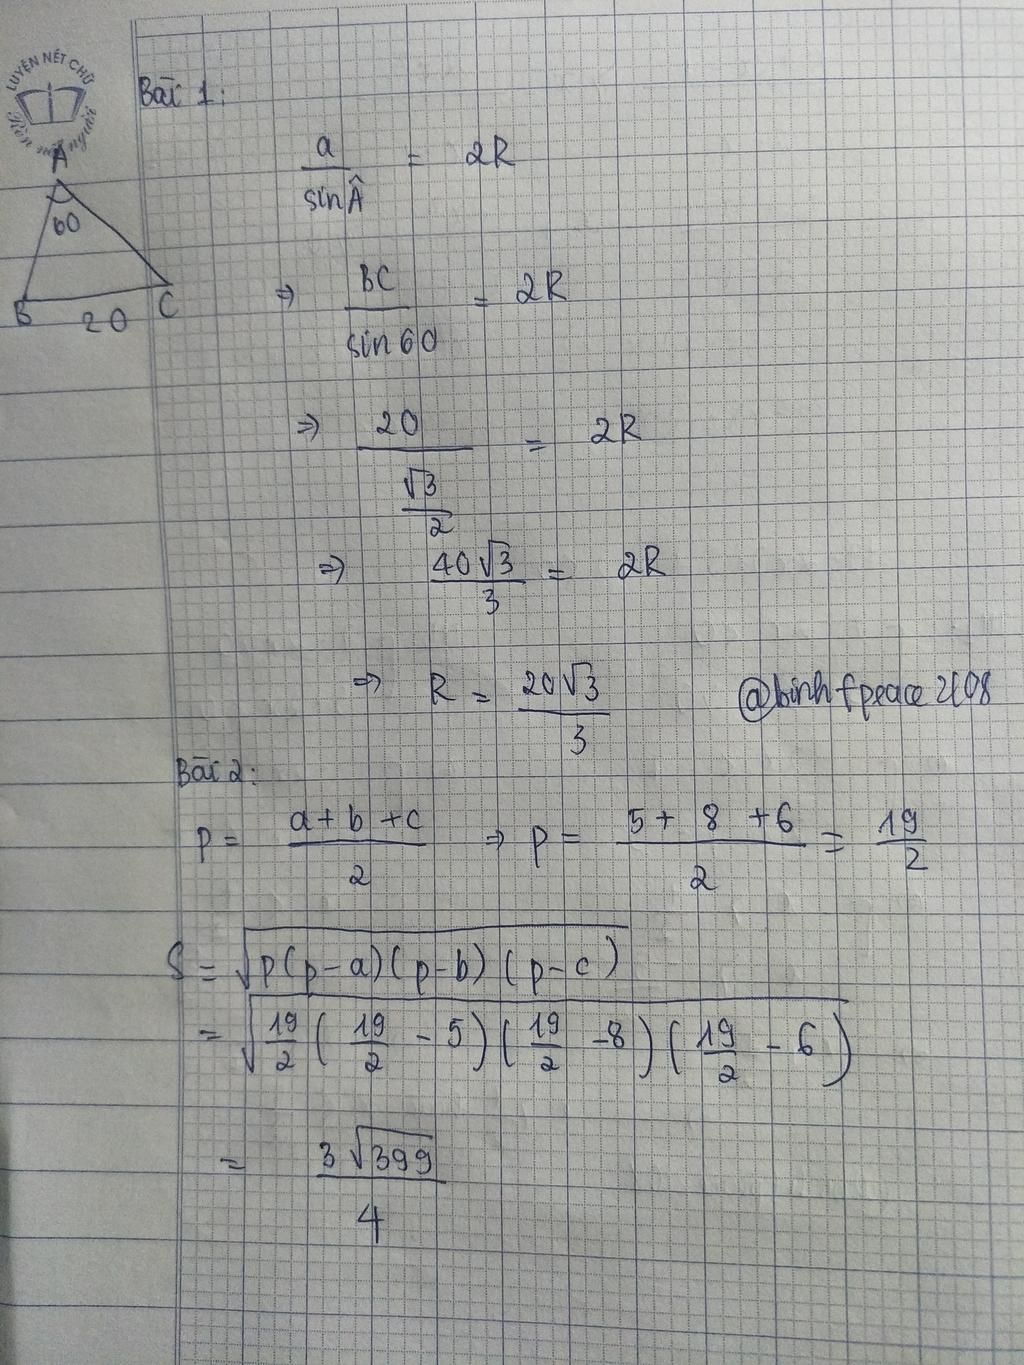 LUYỆN NÉT CHỮ
Rèn nết người
Bài 1:
a/sinÂ = 2R
A
60
B 20 C
⇒ BC/sin60 = 2R
⇒ 20/(√3/2) = 2R
⇒ 40√3/3 = 2R
⇒ R = 20√3/3
@binhfpeace2108
Bài 2:
P = (a+b+c)/2 ⇒ p = (5+8+6)/2 = 19/2
S = √(p(p-a)(p-b)(p-c))
= √(19/2(19/2-5)(19/2-8)(19/2-6))
= 3√399/4